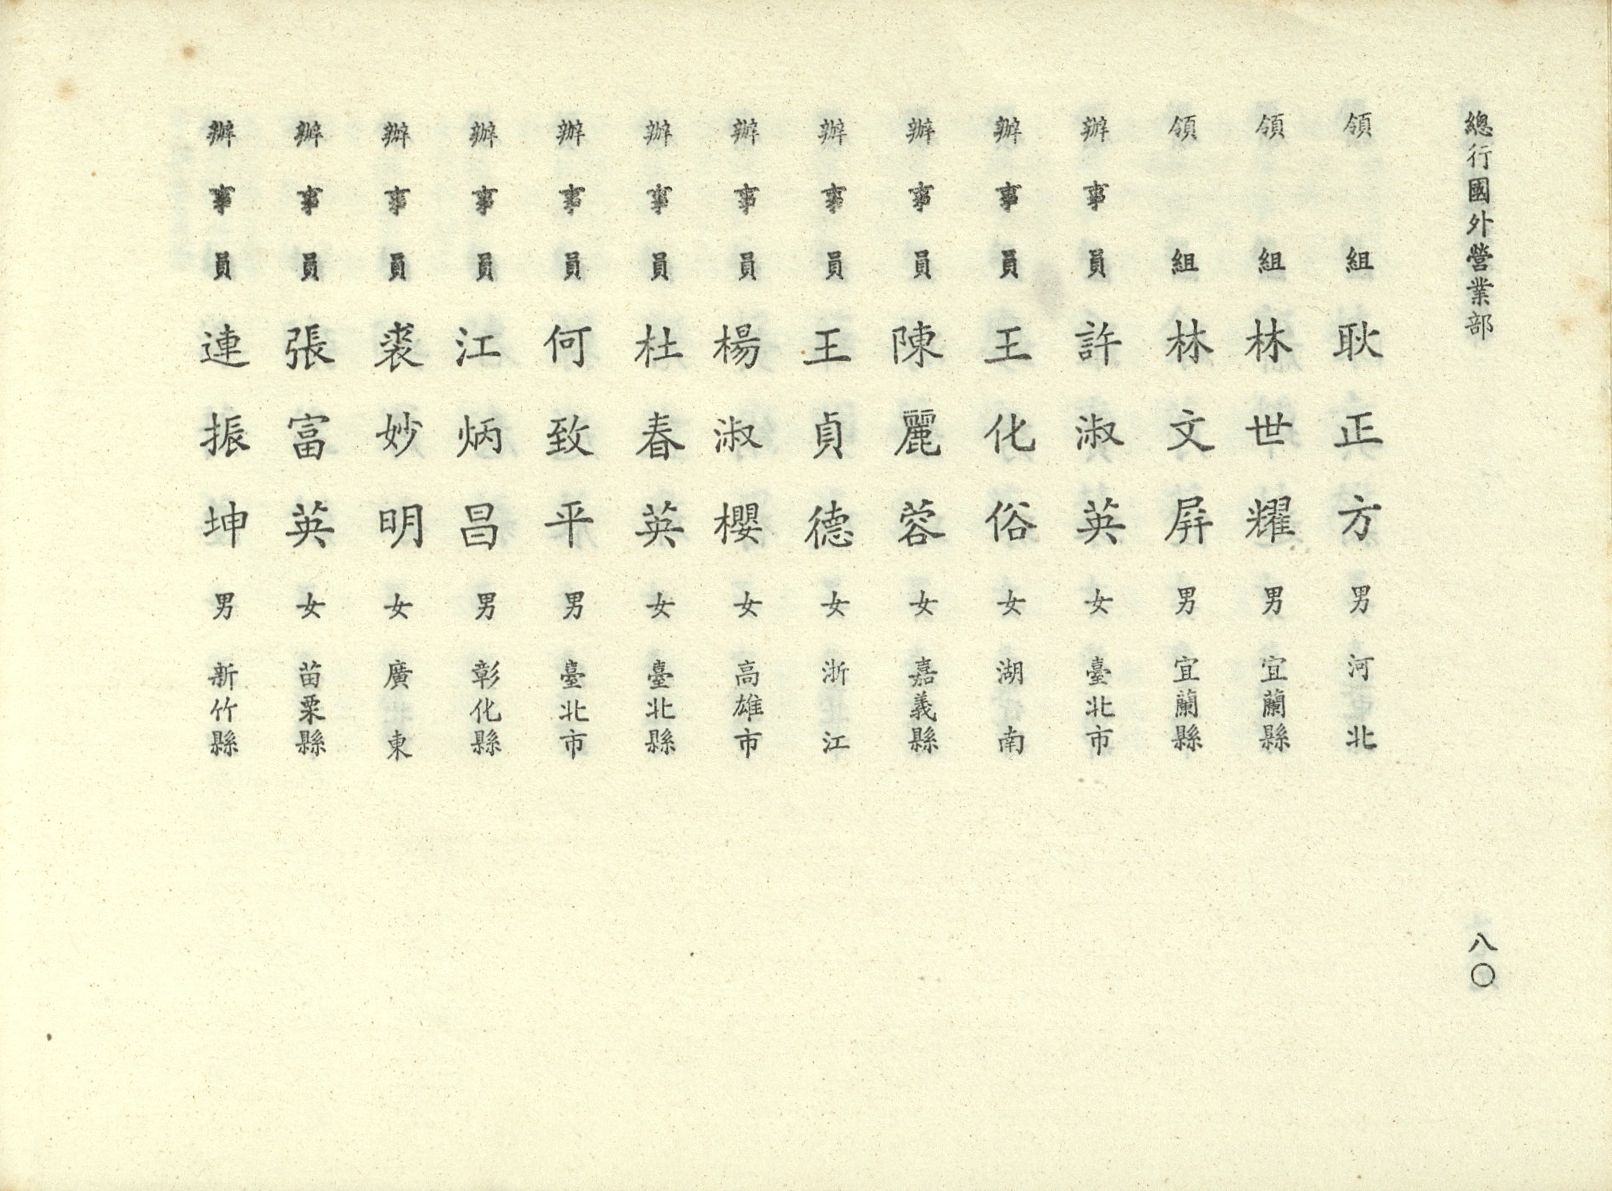 總行國外營業部
八〇
領組 耿正方 男 河北
領組 林世耀 男 宜蘭縣
領組 林文屏 男 宜蘭縣
辦事員 許淑英 女 臺北市
辦事員 王化俗 女 湖南
辦事員 陳麗蓉 女 嘉義縣
辦事員 王貞德 女 浙江
辦事員 楊淑櫻 女 高雄市
辦事員 杜春英 女 臺北縣
辦事員 何致平 男 臺北市
辦事員 江炳昌 男 彰化縣
辦事員 裘妙明 女 廣東
辦事員 張富英 女 苗栗縣
辦事員 連振坤 男 新竹縣